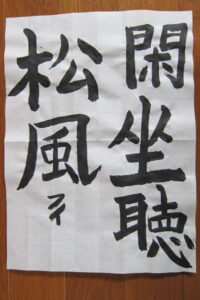 閑坐聴
松風